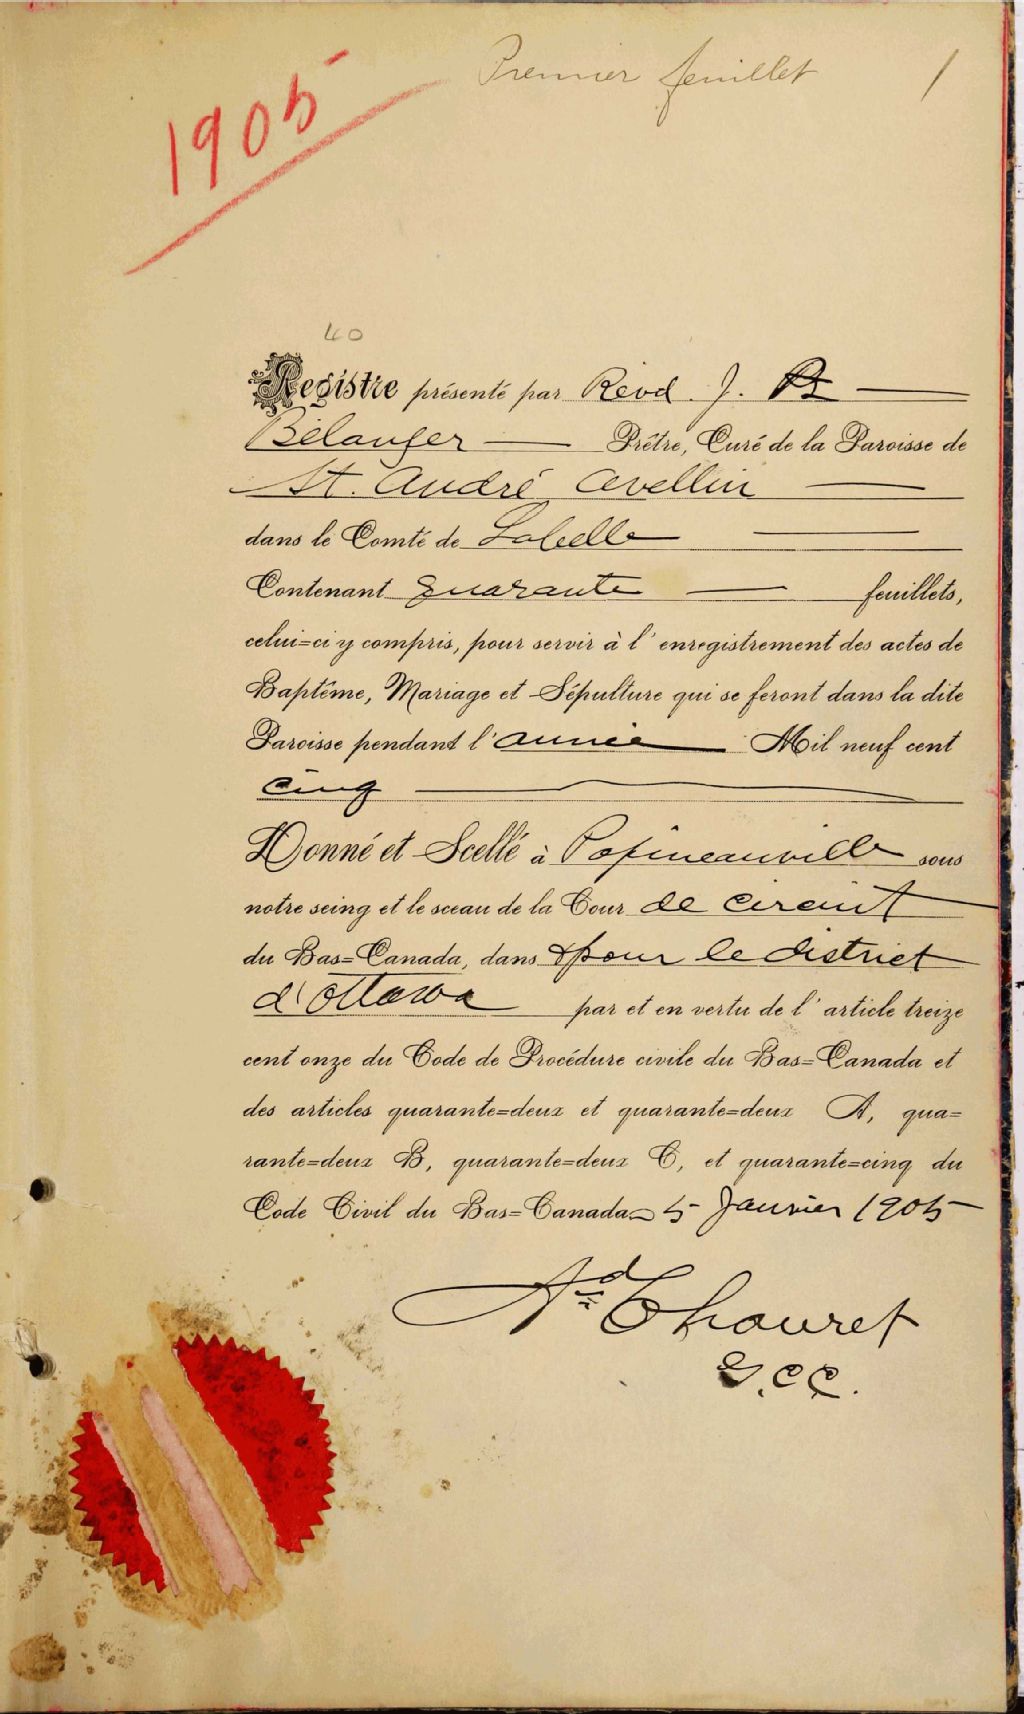 Premier feuillet 1
1905
40
Registre présenté par Révd. J. B
Bélanger Prêtre, Curé de la Paroisse de
St. André Avellin
dans le Comté de Labelle
Contenant quarante feuillets,
celui=ci y compris, pour servir à l'enregistrement des actes de
Baptême, Mariage et Sépulture qui se feront dans la dite
Paroisse pendant l'année Mil neuf cent
cinq
Donné et Scellé à Papineauville sous
notre seing et le sceau de la Cour de circuit
du Bas=Canada, dans & pour le district
d'Ottawa par et en vertu de l'article treize
cent onze du Code de Procédure civile du Bas=Canada et
des articles quarante=deux et quarante=deux A, qua=
rante=deux B, quarante=deux C, et quarante=cinq du
Code Civil du Bas=Canada 5 Janvier 1905
Ad Thouret
G.C.C.